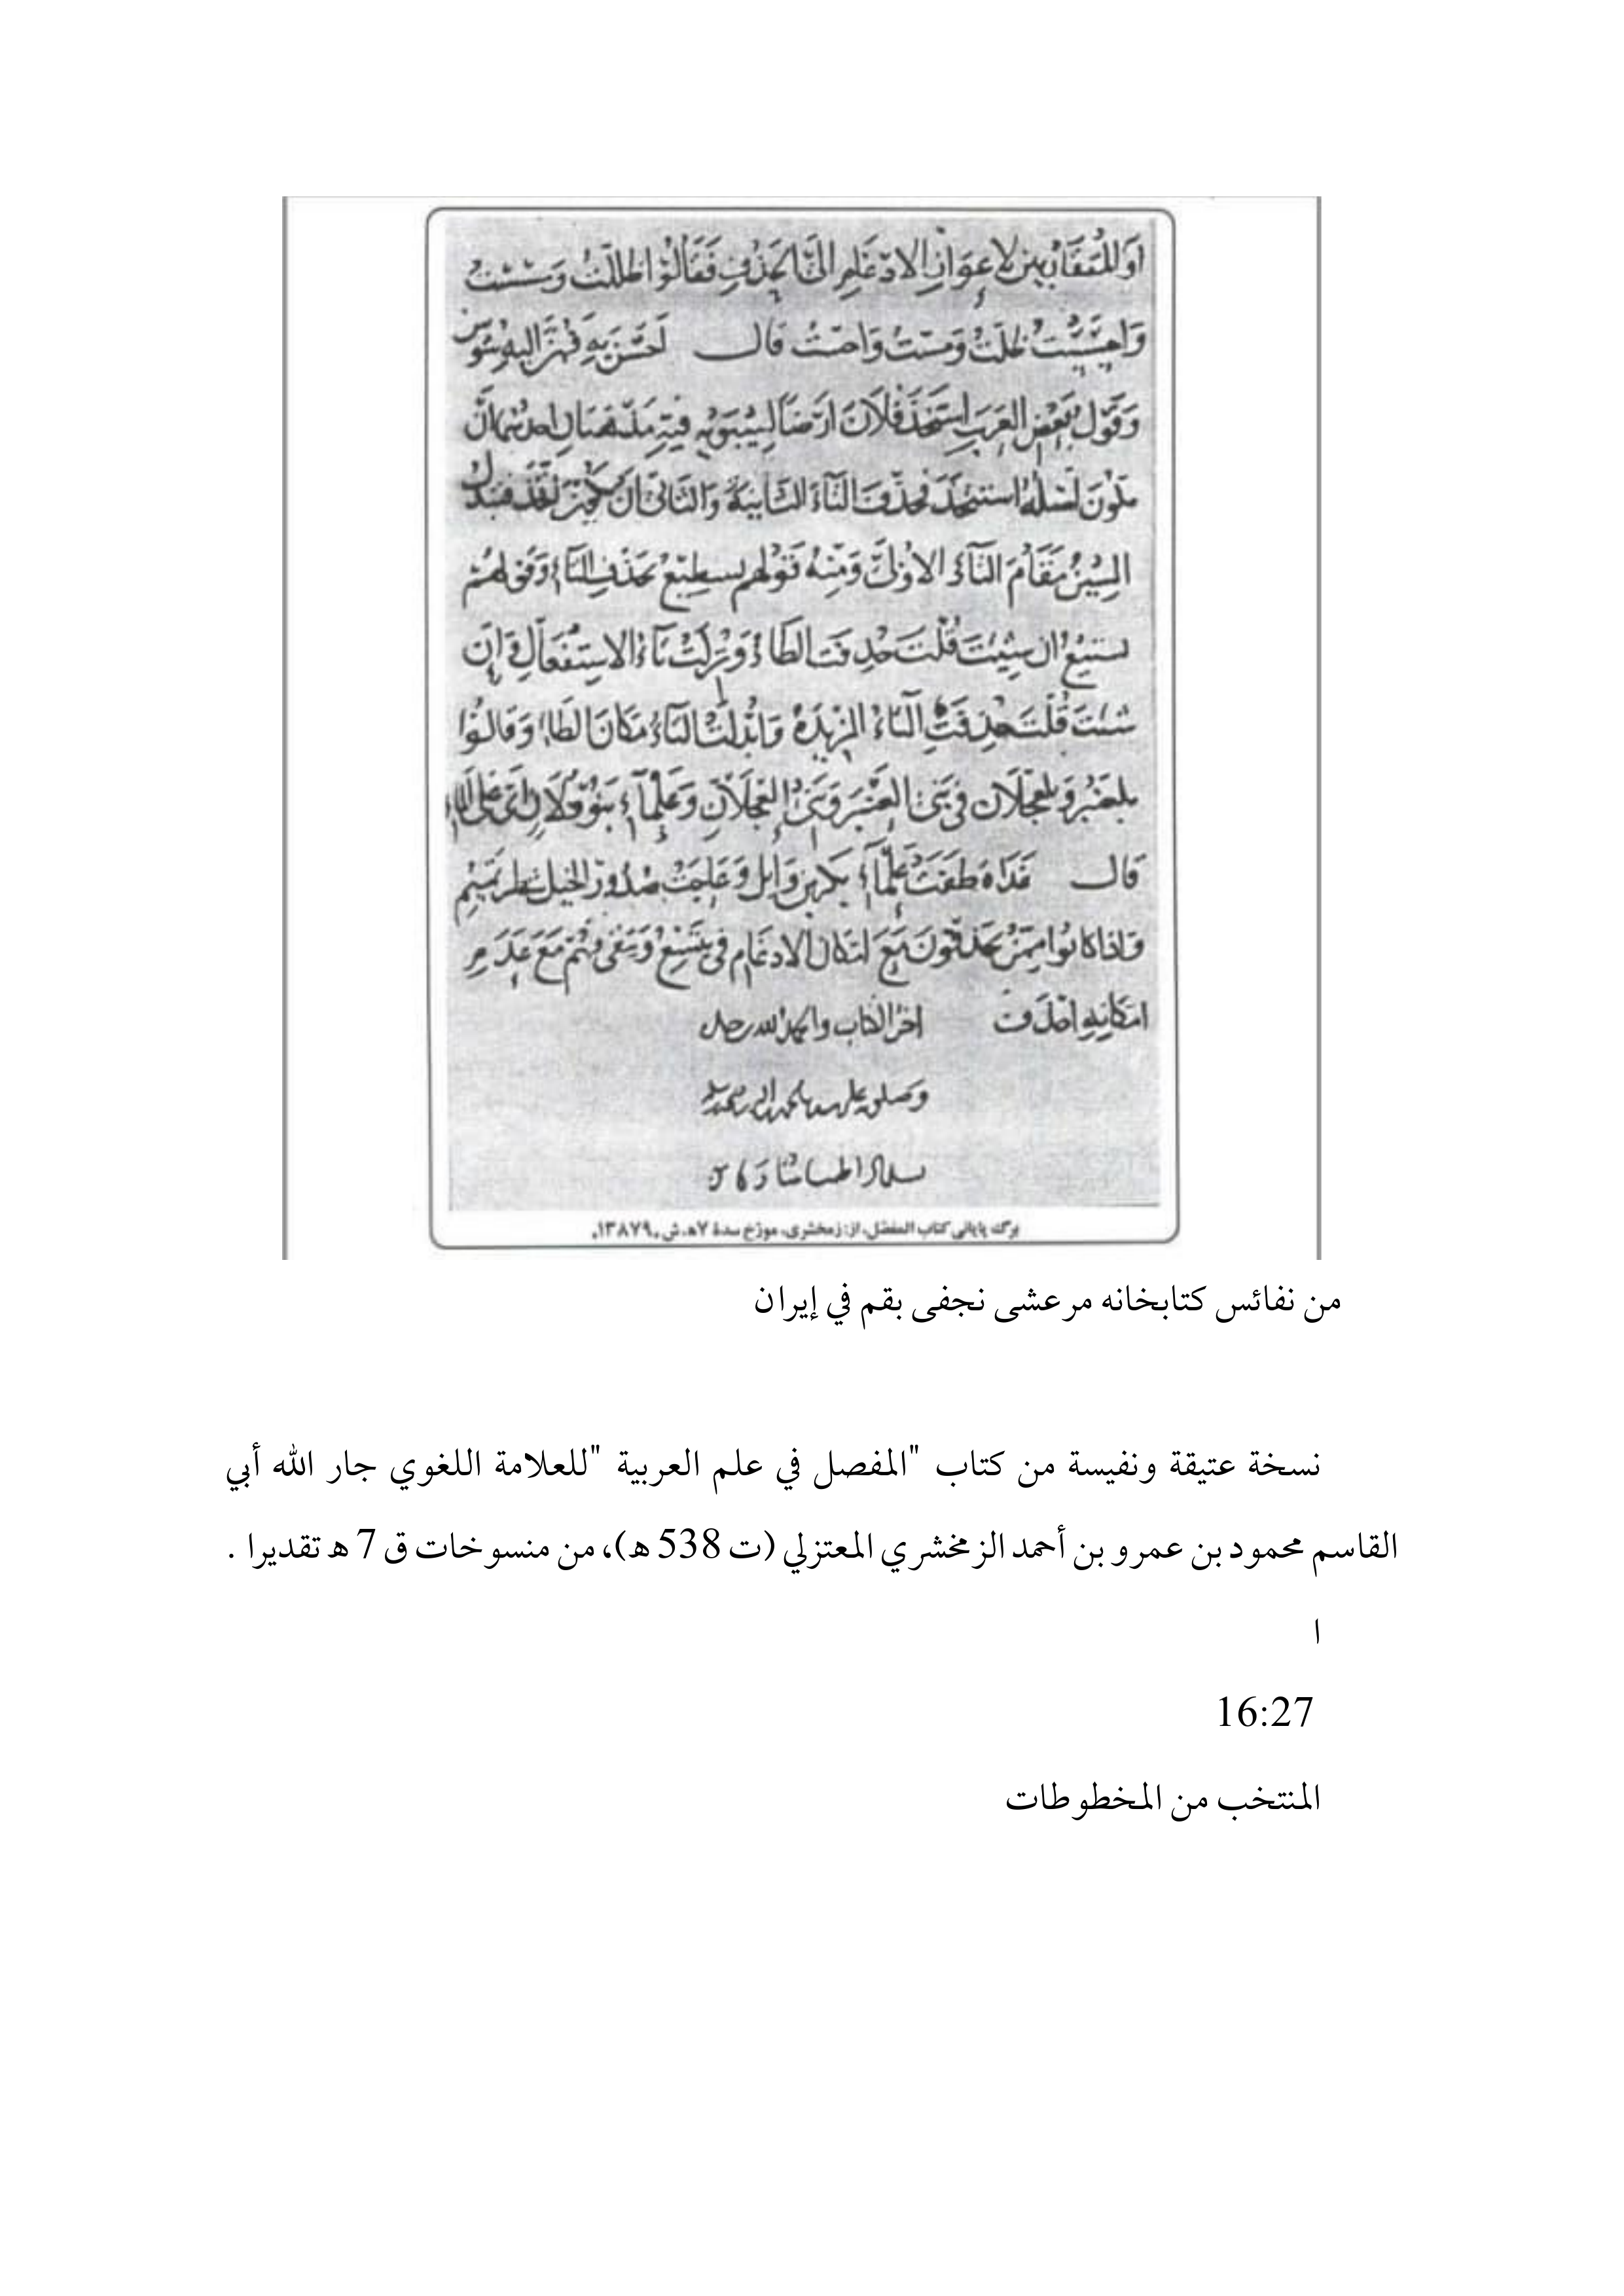 او المتقاربين لاعواز الادغام الى الحذف فقالوا ظللت ومسست
واحسست ظلت ومست واحست قال احسن به فهن اليه شوس
وقول بعض العرب استخذ فلان ارضا لسيبويه فيه مذهبان احدهما ان
يكون اصله استتخذ فحذف التاء الثانية والثانى ان يكون اتخذ فتبدل
السين مقام التاء الاولى ومنه قولهم يسطيع بحذف التاء وقولهم
يستيع ان شيت قلت حذفت الطاء وتركت تاء الاستفعال وان
شئت قلت حذفت التاء المزيدة وابدلت التاء مكان الطاء وقالوا
بلعنبر وبلعجلان فى بنى العنبر وبنى العجلان وعلماء بنو فلان اى على الماء
قال غداة طفت علماء بكر بن وايل وعاجت صدور الخيل شطر تميم
واذا كانوا ممن يحذفون مع امكان الادغام فى يتسع ويتقى فهم مع عدم
امكانه احذف اخر الكتاب والحمد لله
وصلى على
برگ پایانی کتاب المفصّل، از: زمخشری، مورّخ سدهٔ ۷هـ، ش ۱۳۸۷۹.
من نفائس كتابخانه مرعشى نجفى بقم في إيران
نسخة عتيقة ونفيسة من كتاب "المفصل في علم العربية "للعلامة اللغوي جار الله أبي
القاسم محمود بن عمرو بن أحمد الزمخشري المعتزلي (ت 538 هـ)، من منسوخات ق 7 هـ تقديرا .
ا
16:27
المنتخب من المخطوطات